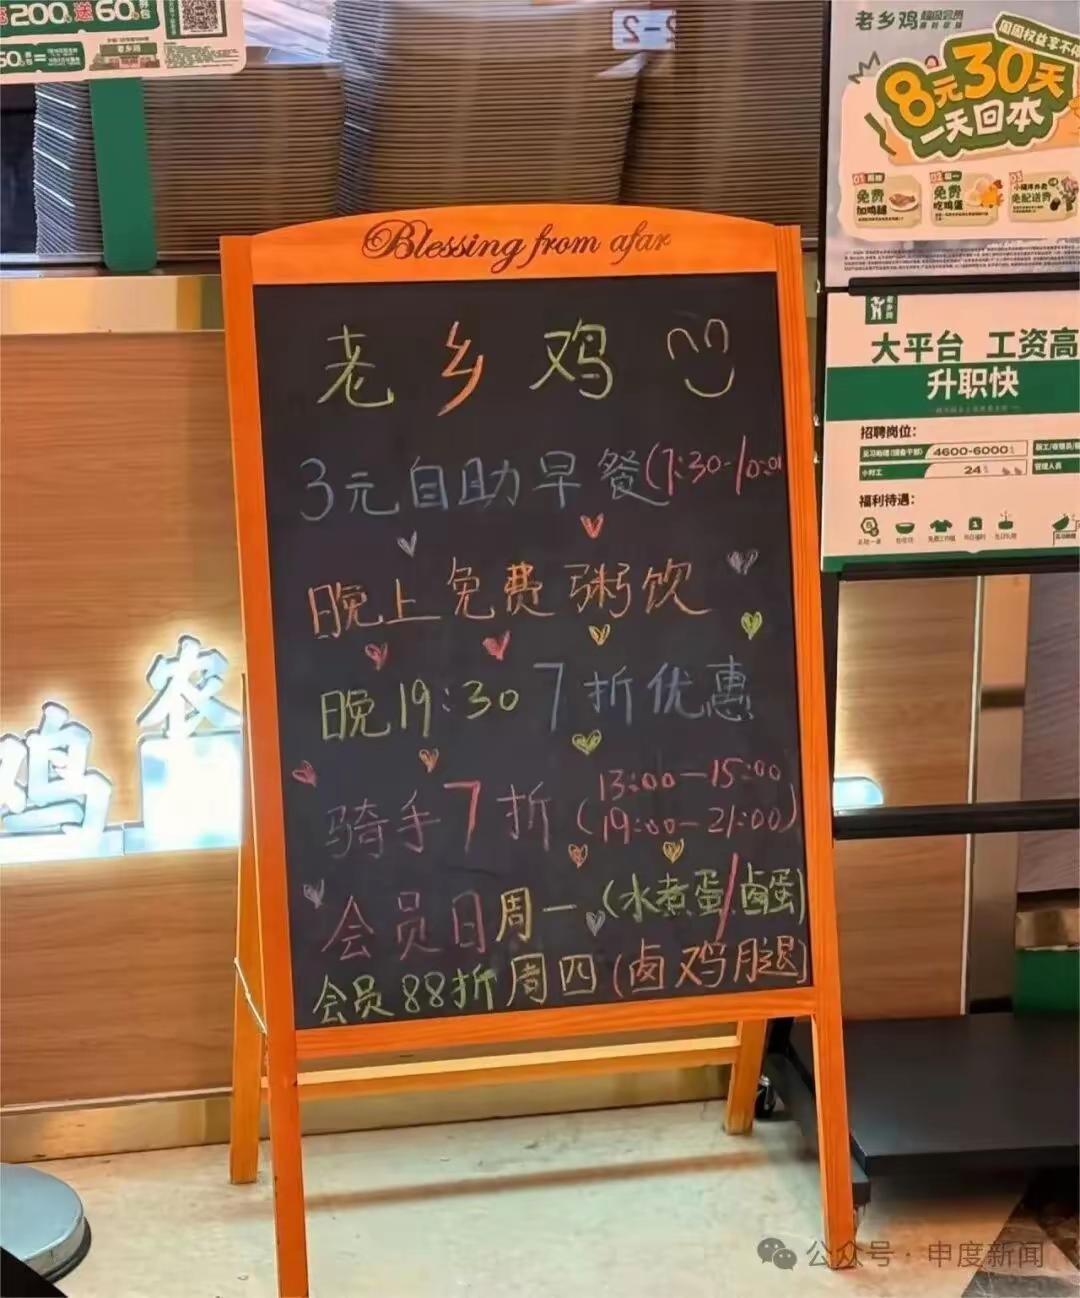 200 送60
2-2
老乡鸡
8元30天
一天回本
免费
免费
吃鸡蛋
免配送费
Blessing from afar
老乡鸡
3元自助早餐(7:30-10:00
晚上免费粥饮
晚19:30 7折优惠
骑手7折(13:00-15:00
19:00-21:00)
会员日周一(水煮蛋/卤蛋)
会员88折周四(卤鸡腿)
老乡鸡
大平台 工资高
升职快
招聘岗位:
4600-6000
小时工 24
管理人员
福利待遇:
鸡 农
公众号·申度新闻